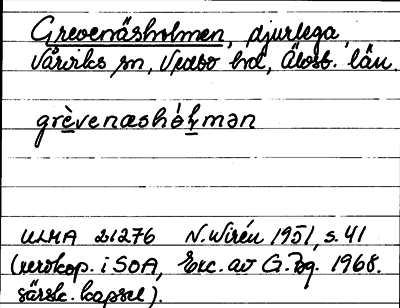 Grevenäsholmen, djurlega,
Vårviks sn, Vedbo hd, Älvsb. län.
grèvenæshó̀ḷmən
ULMA 21276 N. Wirén 1951, s. 41
(xerokop. i SOA, Exc. av G. Bg. 1968.
särsk. kapsel).